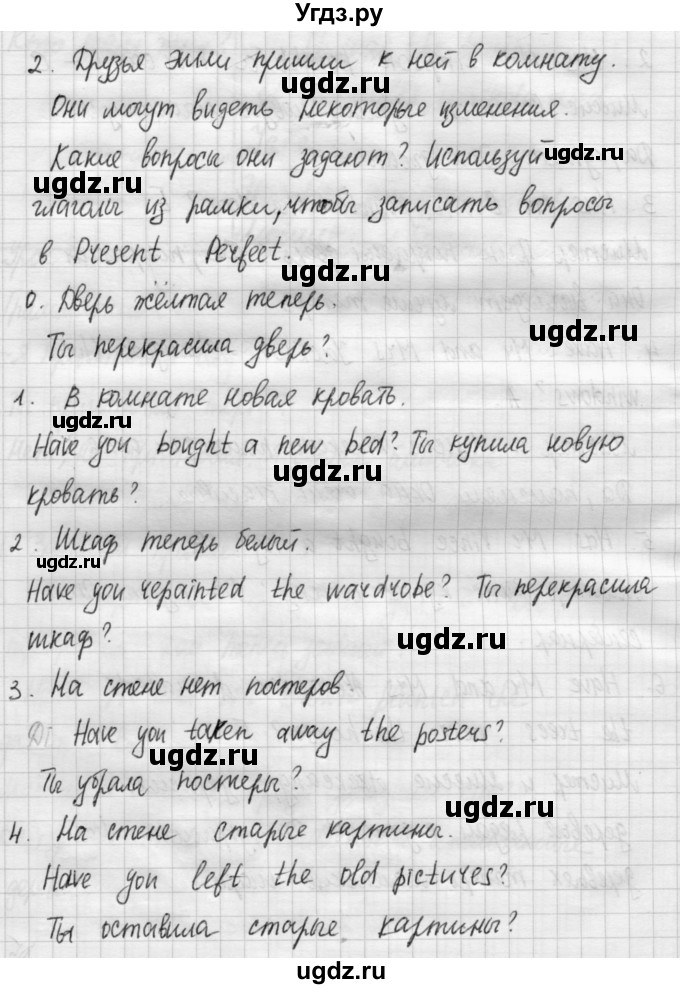 Угдз.ру
2. Друзья Эмли пришли к ней в комнату.
ugdz.ru
Они могут видеть некоторые изменения.
ugdz.ru
Какие вопросы они задают? Используй
ugdz.ru
ugdz.ru
глаголы из рамки, чтобы записать вопросы
в Present Perfect.
ugdz.ru
0. Дверь жёлтая теперь.
ugdz.ru
Ты перекрасила дверь?
1. В комнате новая кровать.
ugdz.ru
Have you bought a new bed? Ты купила новую
ugdz.ru
кровать?
2. Шкаф теперь белый.
ugdz.ru
Have you repainted the wardrobe? Ты перекрасила
шкаф?
ugdz.ru
3. На стене нет постеров
Have you taken away the posters?
ugdz.ru
Ты убрала постеры?
ugdz.ru
4. На стене старые картины.
Have you left the old pictures?
ugdz.ru
Ты оставила старые картины?
ugdz.ru